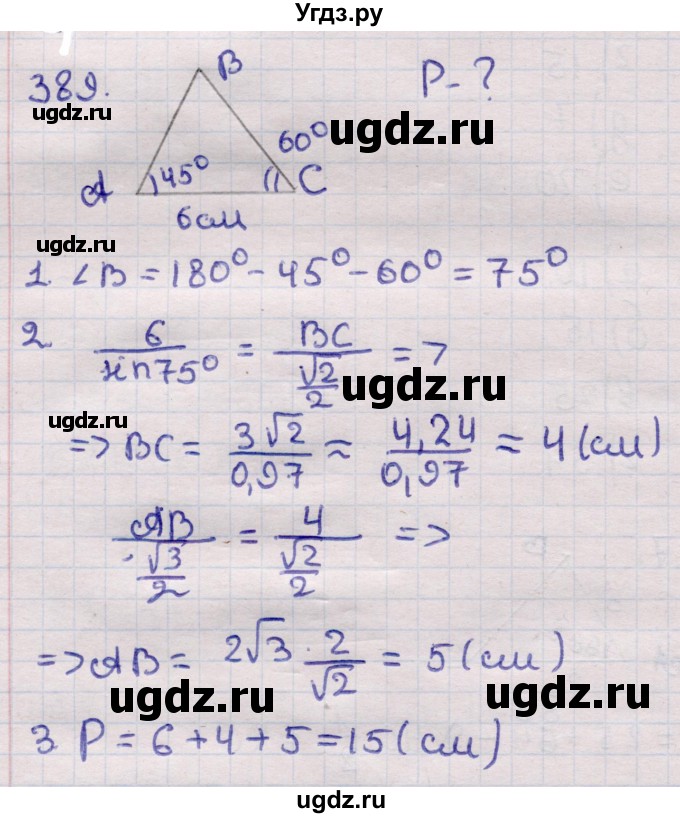 Угдз.ру
389.
B
P-?
60°
ugdz.ru
ugdz.ru
A
45°
C
6 см
ugdz.ru
1. ∠B = 180° - 45° - 60° = 75°
2. 6/sin75° = BC/(√2/2) =>
ugdz.ru
ugdz.ru
=> BC = 3√2/0,97 ≈ 4,24/0,97 ≈ 4 (см)
AB/(√3/2) = 4/(√2/2) =>
=> AB = 2√3 · 2/√2 = 5 (см)
ugdz.ru
ugdz.ru
3. P = 6 + 4 + 5 = 15 (см)
ugdz.ru